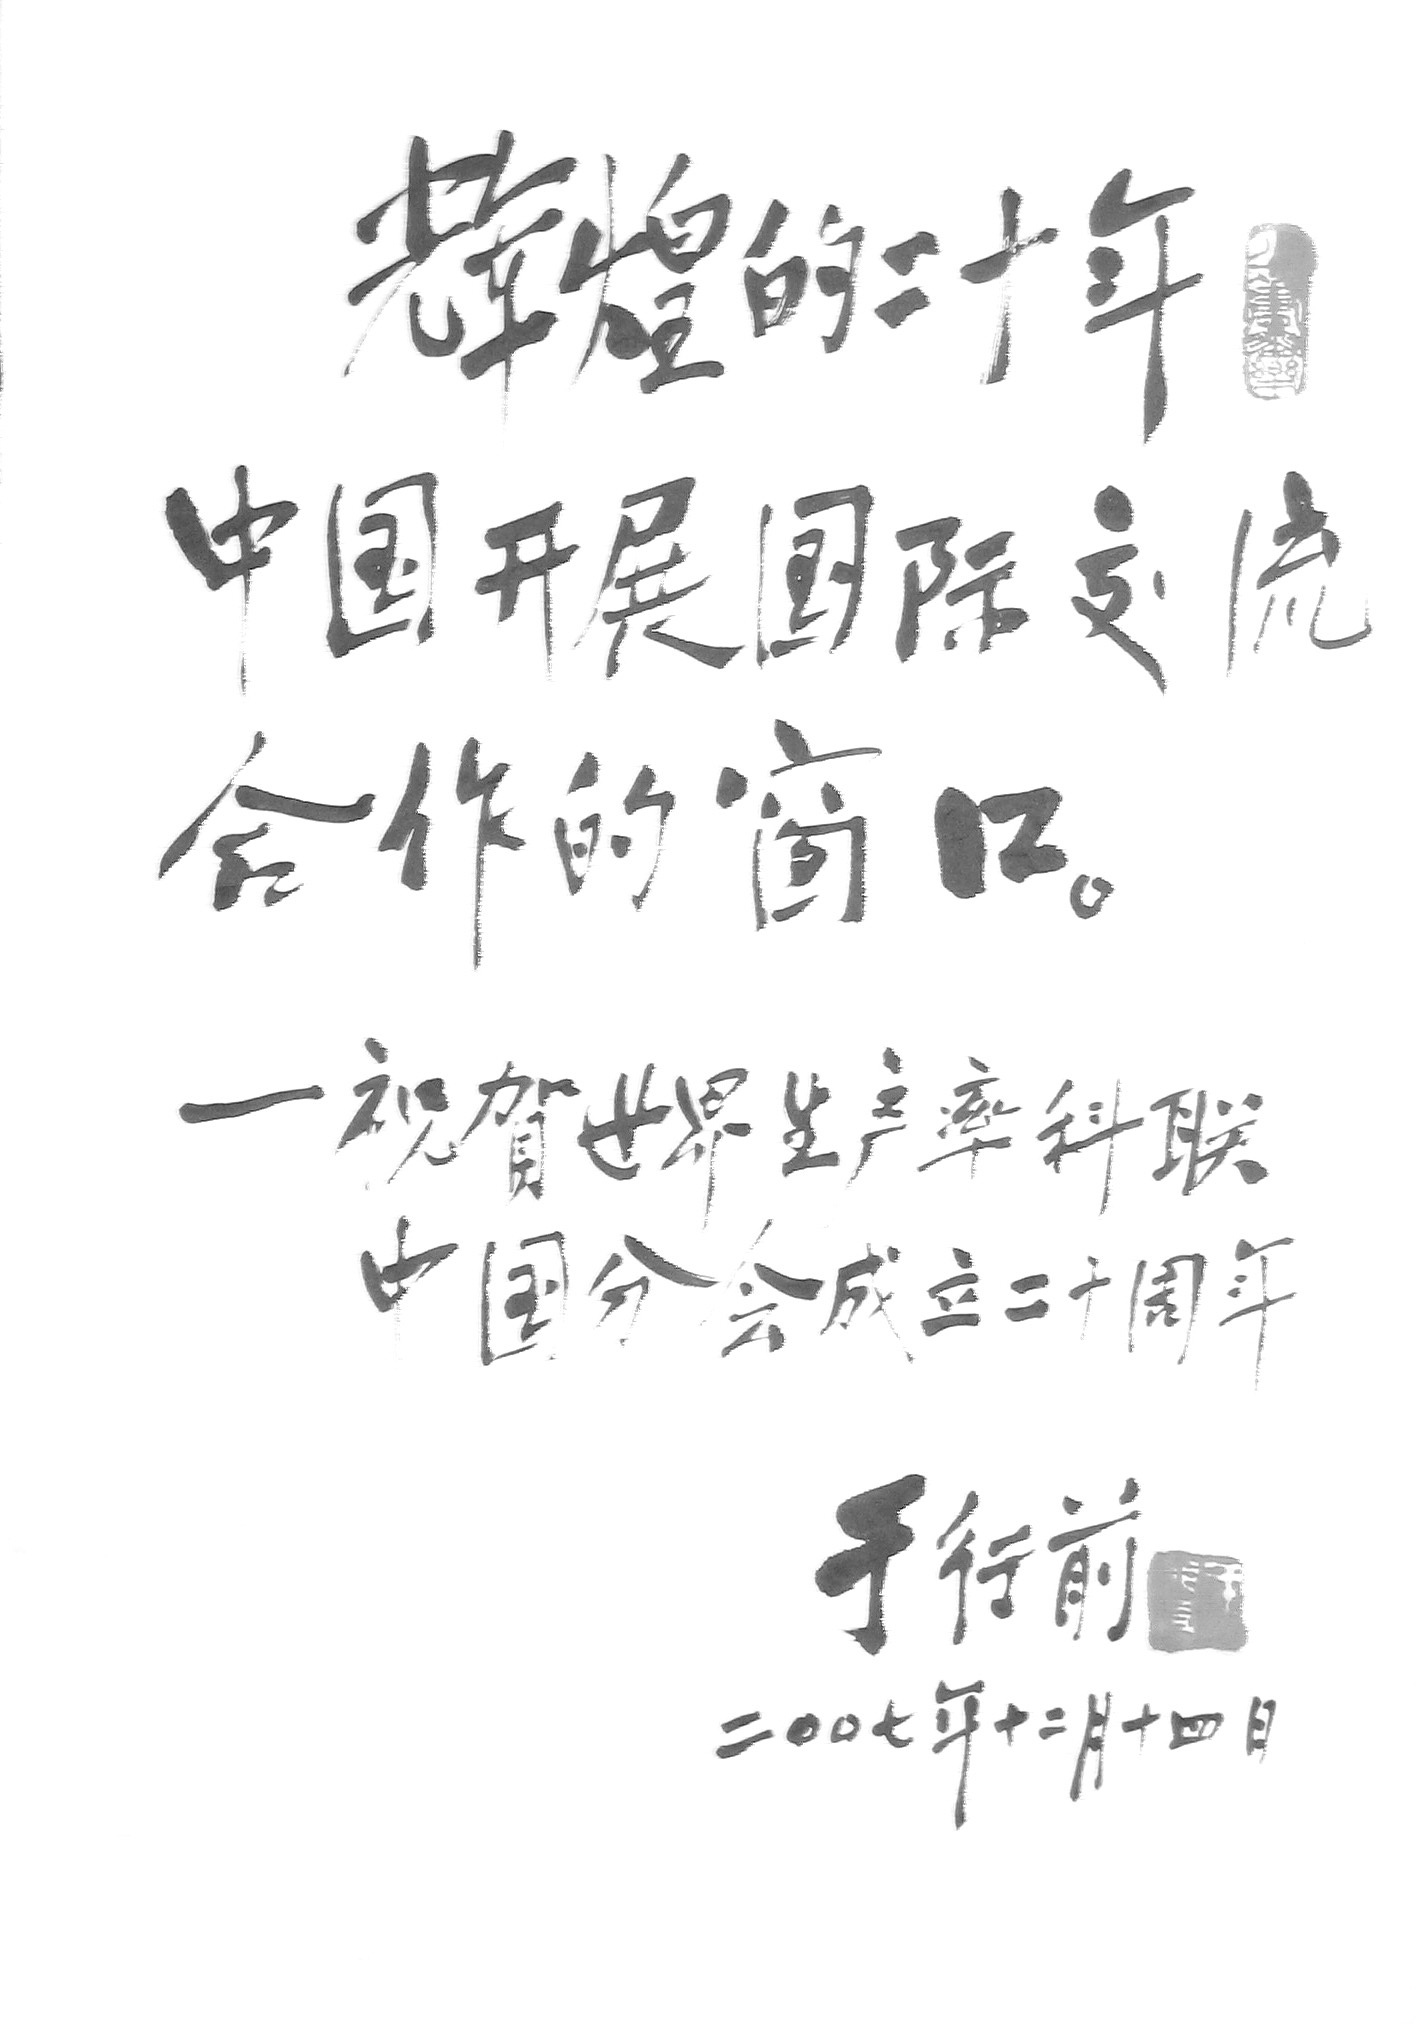 辉煌的二十年
中国开展国际交流
合作的窗口。
一祝贺世界生产率科联
中国分会成立二十周年
于行前
二〇〇七年十二月十四日